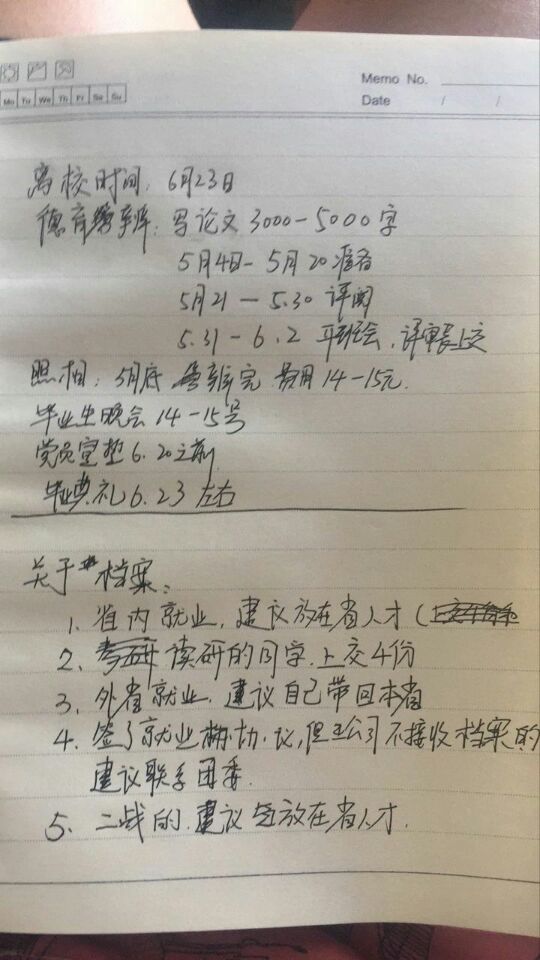 Memo No.
Date / /
Mo Tu We Th Fr Sa Su
离校时间：6月23日
德育答辩：写论文3000-5000字
5月4日-5月20准备
5月21-5.30评阅
5.31-6.2 开班会，评审表上交
照相：5月底 答辩完 费用14-15元.
毕业生晚会14-15号
党员宣誓6.20之前
毕业典礼6.23左右
关于档案：
1、省内就业，建议放在省人才（
2、读研的同学，上交4份
3、外省就业，建议自己带回本省
4、签了就业协议，但公司不接收档案的
建议联系团委.
5、二战的，建议放在省人才.